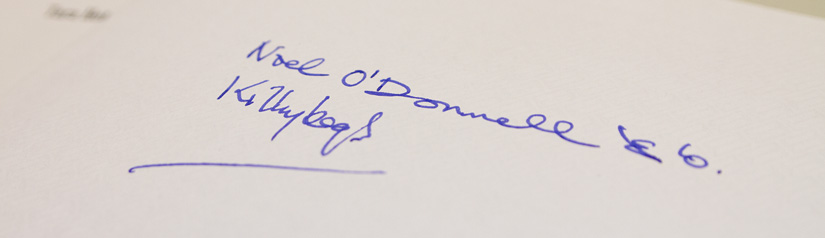 Noel O'Donnell & Co.
Killybegs